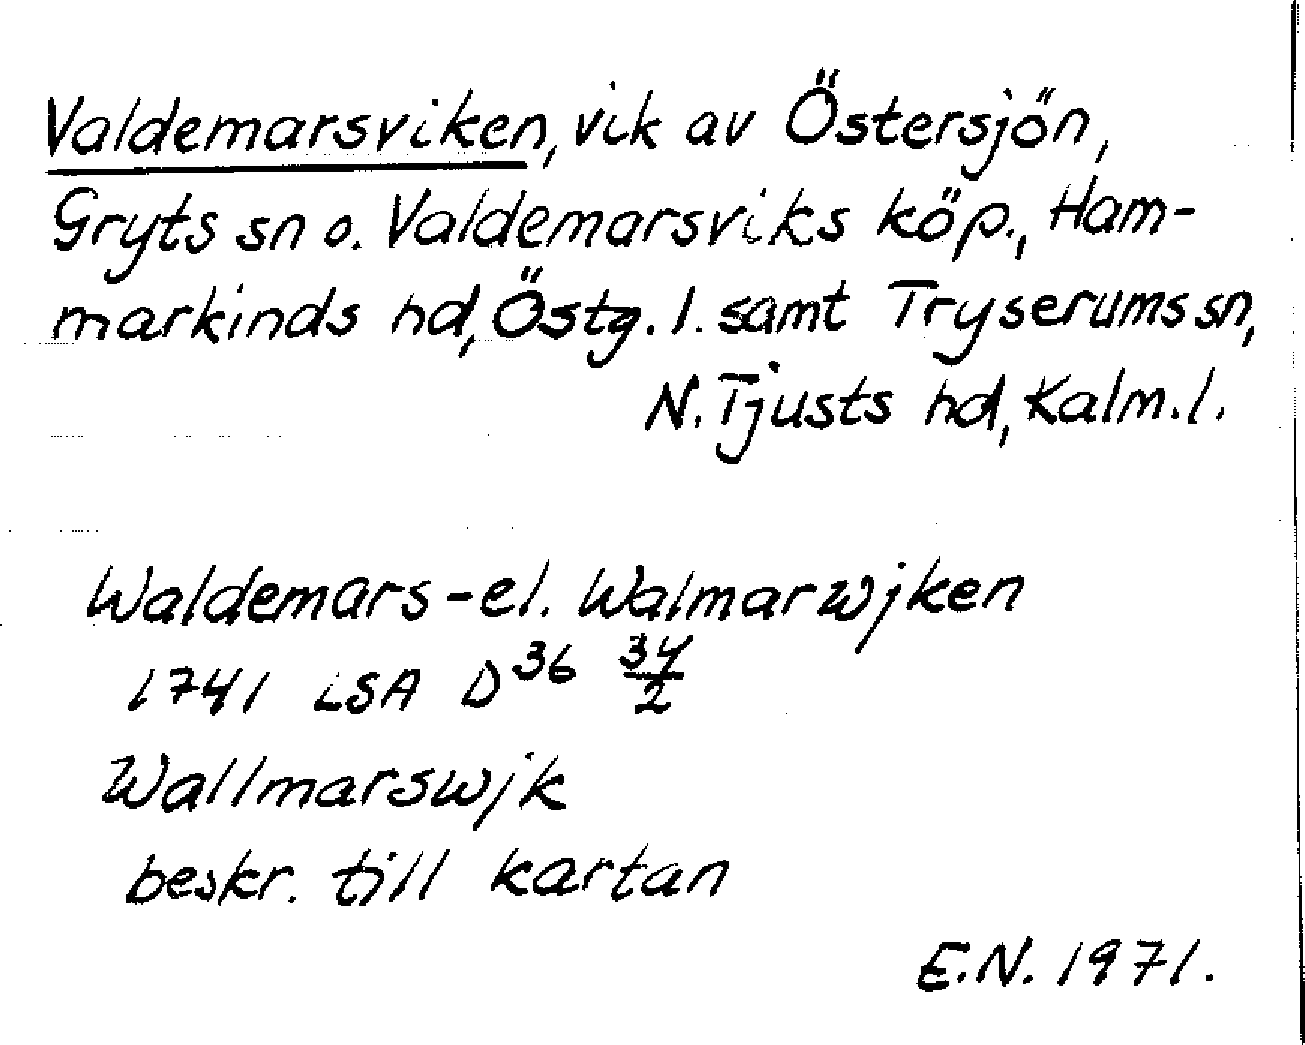 Valdemarsviken, vik av Östersjön,
Gryts sn o. Valdemarsviks köp., Ham-
markinds hd, Östg. l. samt Tryserums sn,
N. Tjusts hd, Kalm. l.
Waldemars- el. Walmarwjken
1741 LSA D36 34/2
Wallmarswjk
beskr. till kartan
E.N. 1971.